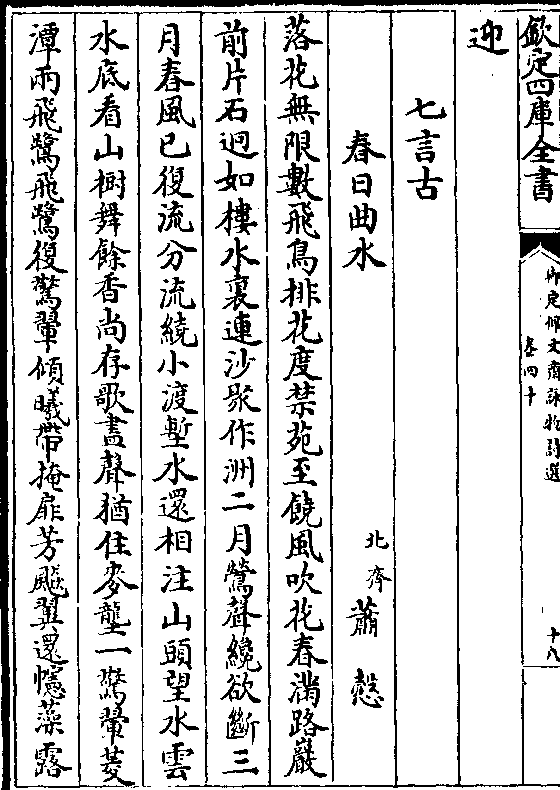 欽定四庫全書
御定佩文齋詠物詩選
卷四十
十八
迎
七言古
春日曲水
北齊蕭慤
落花無限數飛鳥排花度禁苑至饒風吹花春滿路巖
前片石迥如樓水裏連沙聚作洲二月鶯聲纔欲斷三
月春風已復流分流繞小渡塹水還相注山頭望水雲
水底看山樹舞餘香尚存歌盡聲猶住麥壟一驚翬菱
潭兩飛鷺飛鷺復驚翬傾曦帶掩扉芳飈翼還幰藻露